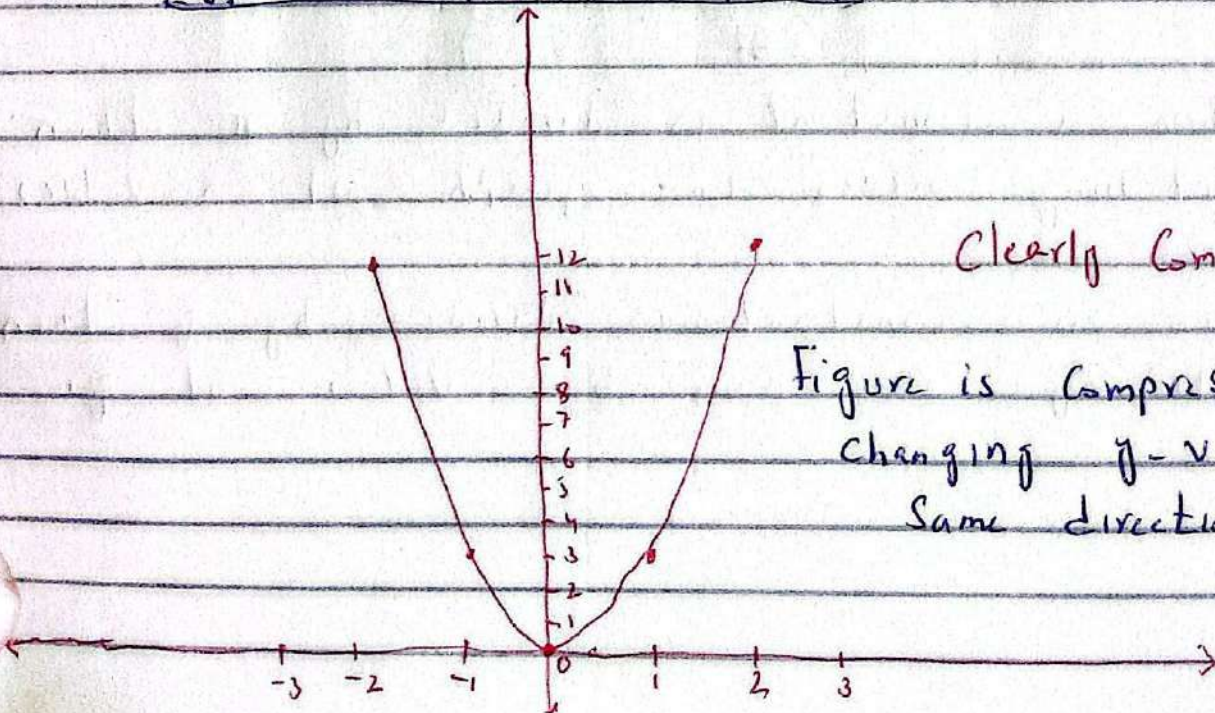 12
11
10
9
8
7
6
5
4
3
2
1
0
-3 -2 -1 1 2 3
Clearly Com
Figure is Compres
Changing y-v
Same directi